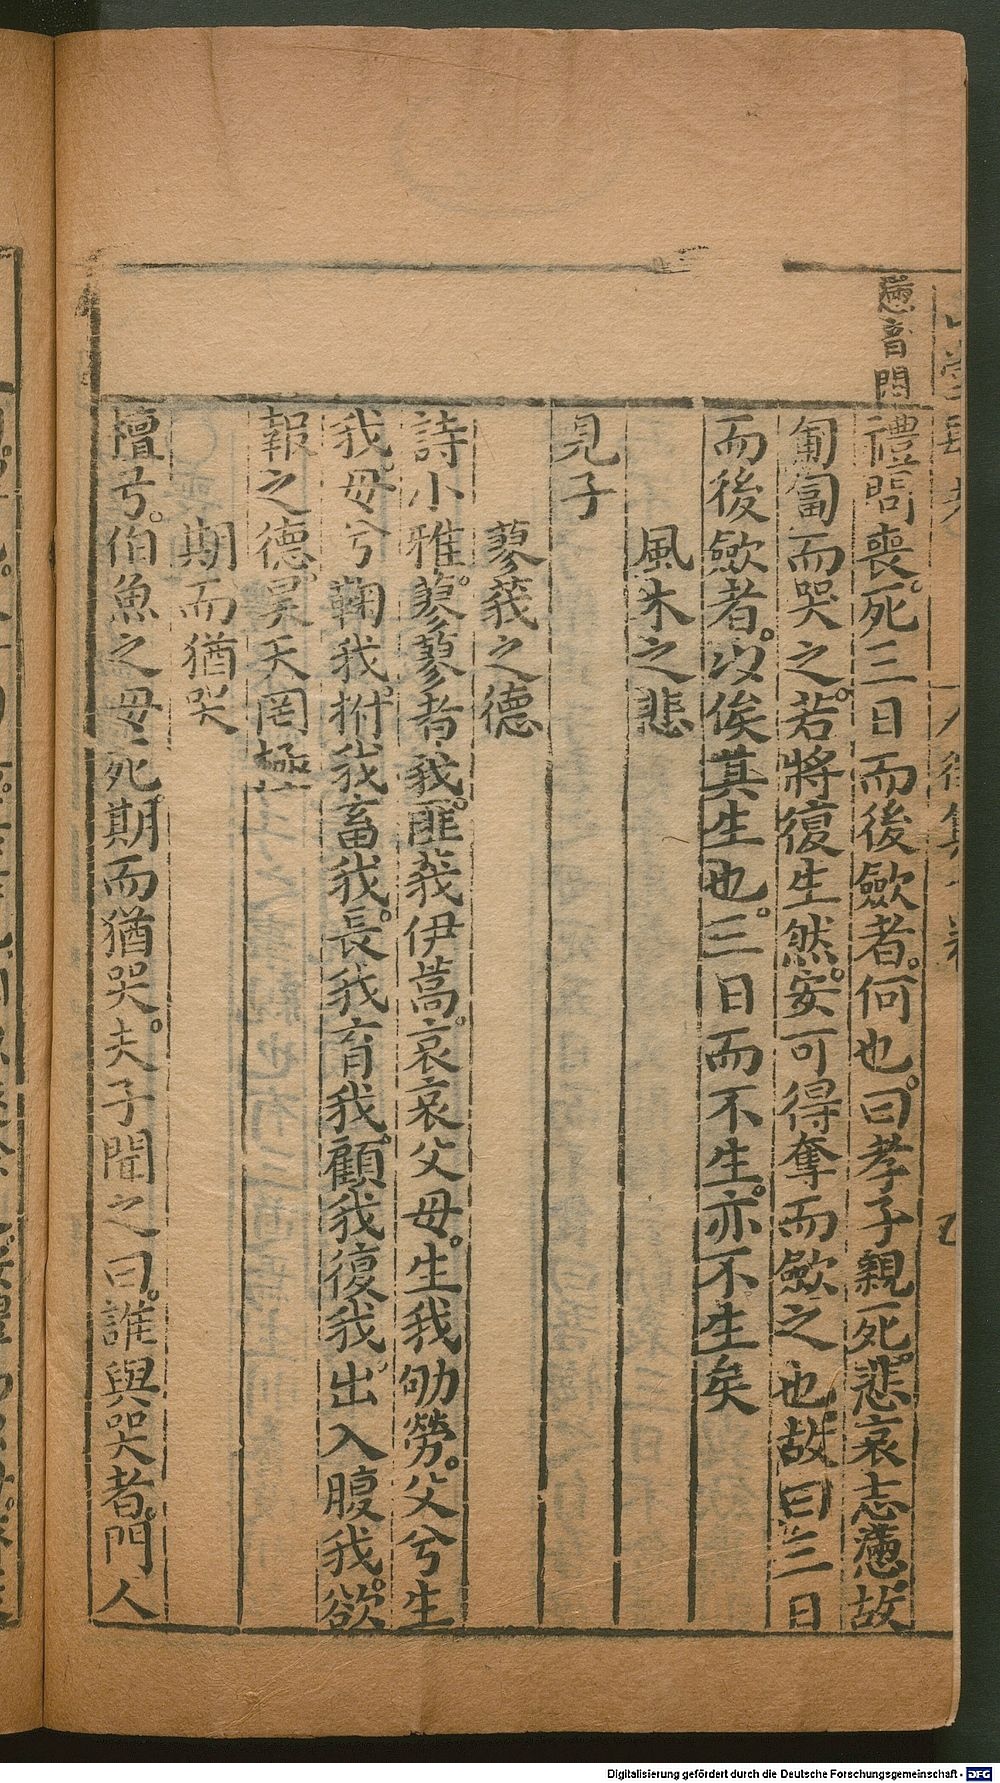 懣音悶
禮問喪。死三日而後歛者。何也。曰孝子親死。悲哀志懣故
匍匐而哭之。若將復生然。安可得奪而歛之也故曰三日
而後歛者。以俟其生也。三日而不生。亦不生矣
風木之悲
見子
蓼莪之德
詩小雅。蓼蓼者莪。匪莪伊蒿。哀哀父母。生我劬勞。父兮生
我。母兮鞠我。拊我畜我。長我育我。顧我復我。出入腹我。欲
報之德。昊天罔極
期而猶哭
檀弓。伯魚之母死。期而猶哭。夫子聞之曰。誰與哭者。門人
Digitalisierung gefördert durch die Deutsche Forschungsgemeinschaft - DFG